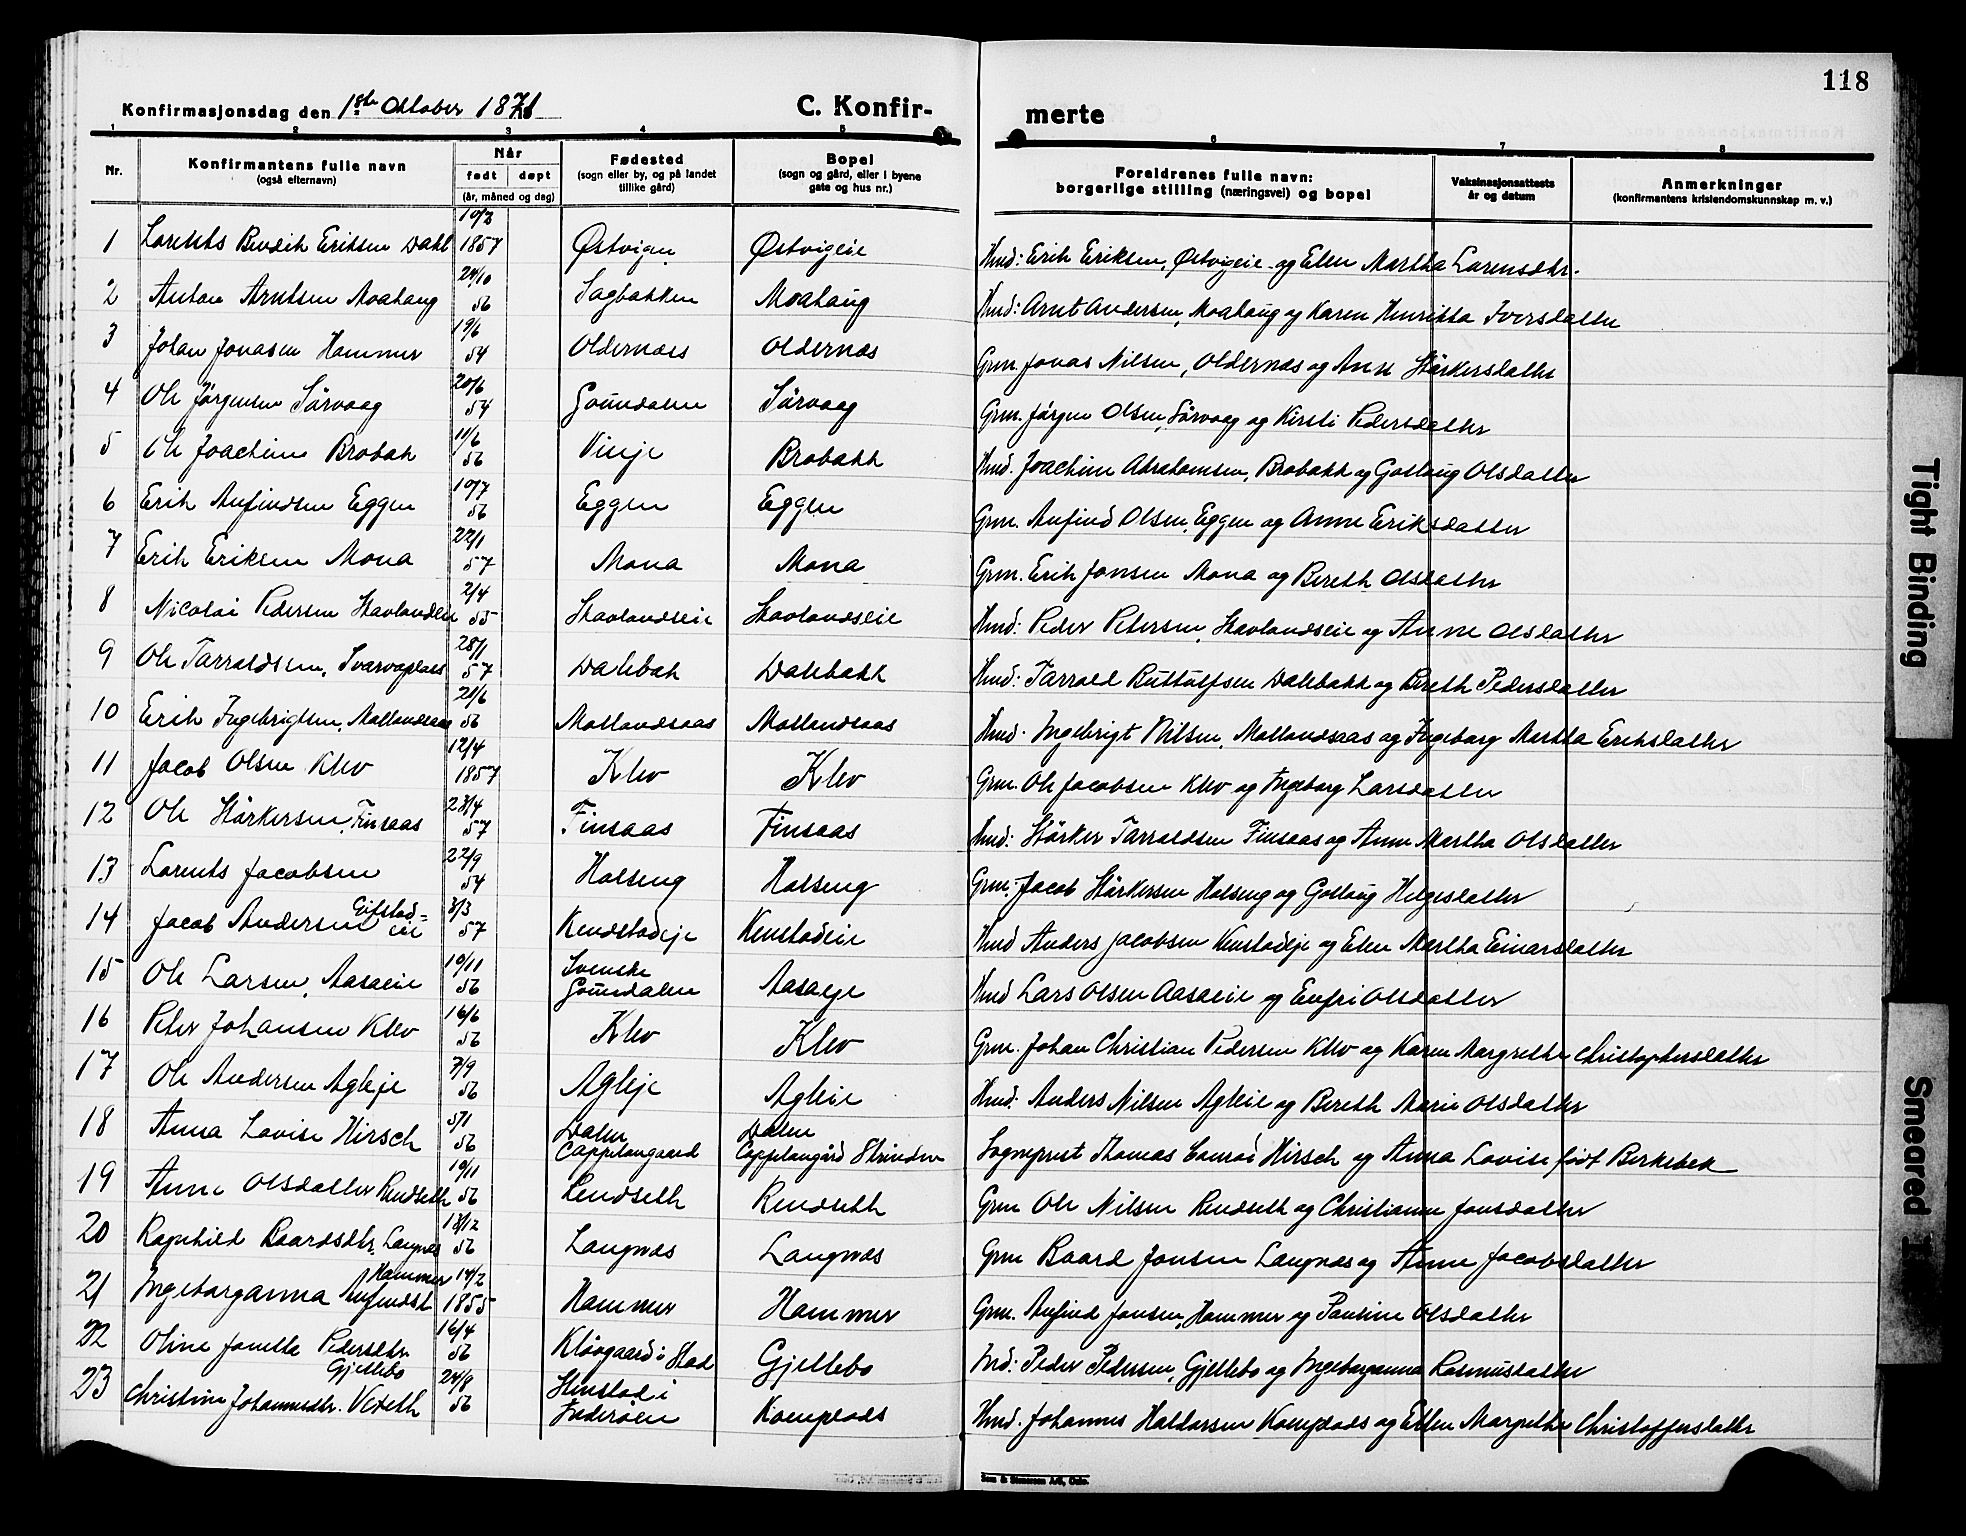 118
Konfirmasjonsdag den 1ste Oktober 1871 C. Konfir- merte
1 2 3 4 5 6 7 8
Nr. Konfirmantens fulle navn (også efternavn) Når født døpt (år, måned og dag) Fødested (sogn eller by, og på landet tillike gård) Bopel (sogn og gård, eller i byene gate og hus nr.) Foreldrenes fulle navn: borgerlige stilling (næringsvei) og bopel Vaksinasjonsattests år og datum Anmerkninger (konfirmantens kristendomskunnskap m. v.)
1 Lorents Bendik Eriksen Dahl 1857 Østvigen Østvigeie Hmd: Erik Eriksen, Østvigeie og Elen Martha Larensdtr.
2 Anton Arntsen Moahaug 24/10 56 Sagbakken Moahaug Hmd: Arnt Andersen, Moahaug og Karen Henrikka Iversdatter
3 Johan Jonasen Hammer 19/6 54 Oldernæs Oldernæs Grm. Jonas Nilsen, Oldernæs og Ane Störkersdatter
4 Ole Jörgensen Sörvaag 20/6 54 Sörvaag Grm. Jörgen Olsen, Sörvaag og Kirsti Pedersdatter
5 Ole Joachim Brobak 11/6 56 Vinje Brobakk Hmd. Joachim Abrahamsen, Brobakk og Gollaug Olsdatter
6 Erik Anfindsen Eggen 10/7 56 Eggen Eggen Grm. Anfind Olsen, Eggen og Anne Eriksdatter
7 Erik Eriksen Mona 22/1 57 Mona Mona Grm. Erik Jonsen Mona og Bereth Olsdatter
8 Nicolai Pedersen 2/4 55 Havlandseie Havlandseie Hmd: Peder Petersen, Havlandseie og Anne Olsdatter
9 Ole Tarraldsen, Svarvaplads 28/1 57 Dalebak Dalebakk Hmd: Tarrald Buttulfsen Dalebakk og Bereth Pedersdatter
10 Erik Ingebrigtsen, Mollandsaas 21/6 56 Mollandsaas Mollandsaas Hmd. Ingebrigt Nilsen, Mollandsaas og Ingeborg Martha Eriksdatter
11 Jacob Olsen Klev 12/4 1857 Klev Klev Grm. Ole Jacobsen Klev og Ingeborg Larsdatter
12 Ole Störkersen, Finsaas 23/4 57 Finsaas Finsaas Hmd: Störker Tarraldsen Finsaas og Anne Martha Olsdatter
13 Lorents Jacobsen 22/9 54 Holseng Holseng Grm. Jacob Störkersen Holseng og Gollaug Helgesdatter
14 Jacob Andersen Gifstad=eie 3/3 57 Kenstadeie Hmd Anders Jacobsen Kenstadeje og Elen Martha Einarsdatter
15 Ole Larsen, Aasaeie 10/11 56 Svenske Aasaeje Hmd Lars Olsen Aasaeie og Olsdatter
16 Peter Johansen Klev 16/6 56 Klev Klev Grm. Johan Christian Pedersen Klev og Karen Margrethe Christophersdatter
17 Ole Andersen Agleje 7/9 56 Agleje Agleie Hmd: Anders Nilsen Agleie og Bereth Marie Olsdatter
18 Anna Lovise Hirsch 5/1 56 Dalen Cappelangaard Dalen Cappelangård Strinden Sogneprest Thomas Conrad Hirsch og Anna Lovise født Birkebek
19 Anne Olsdatter Rendseth 10/11 56 Rendseth Grm Ole Nilsen Rendseth og Christianne Jonsdatter
20 Ragnhild Baardsdtr. Langnes 13/12 56 Langnæs Langnæs Grm Baard Jonsen Langnæs og Anne Jacobsdatter
21 Ingeborganna Anfindsd. Hammer 14/2 1855 Hammer Hammer Grm. Anfind Jonsen, Hammer og Pauline Olsdatter
22 Oline Jonette Pedersdtr. Gjellebo 16/4 56 Gjellebo Ind: Peder Pedersen, Gjellebo og Ingeborganna Rasmusdatter
23 Christine Johannesdtr. 24/8 56 Stenstad i Inderöen Hmd. Johannes Haldorsen og Ellen Margrethe Christoffersdatter
Tight Binding
Smeared I